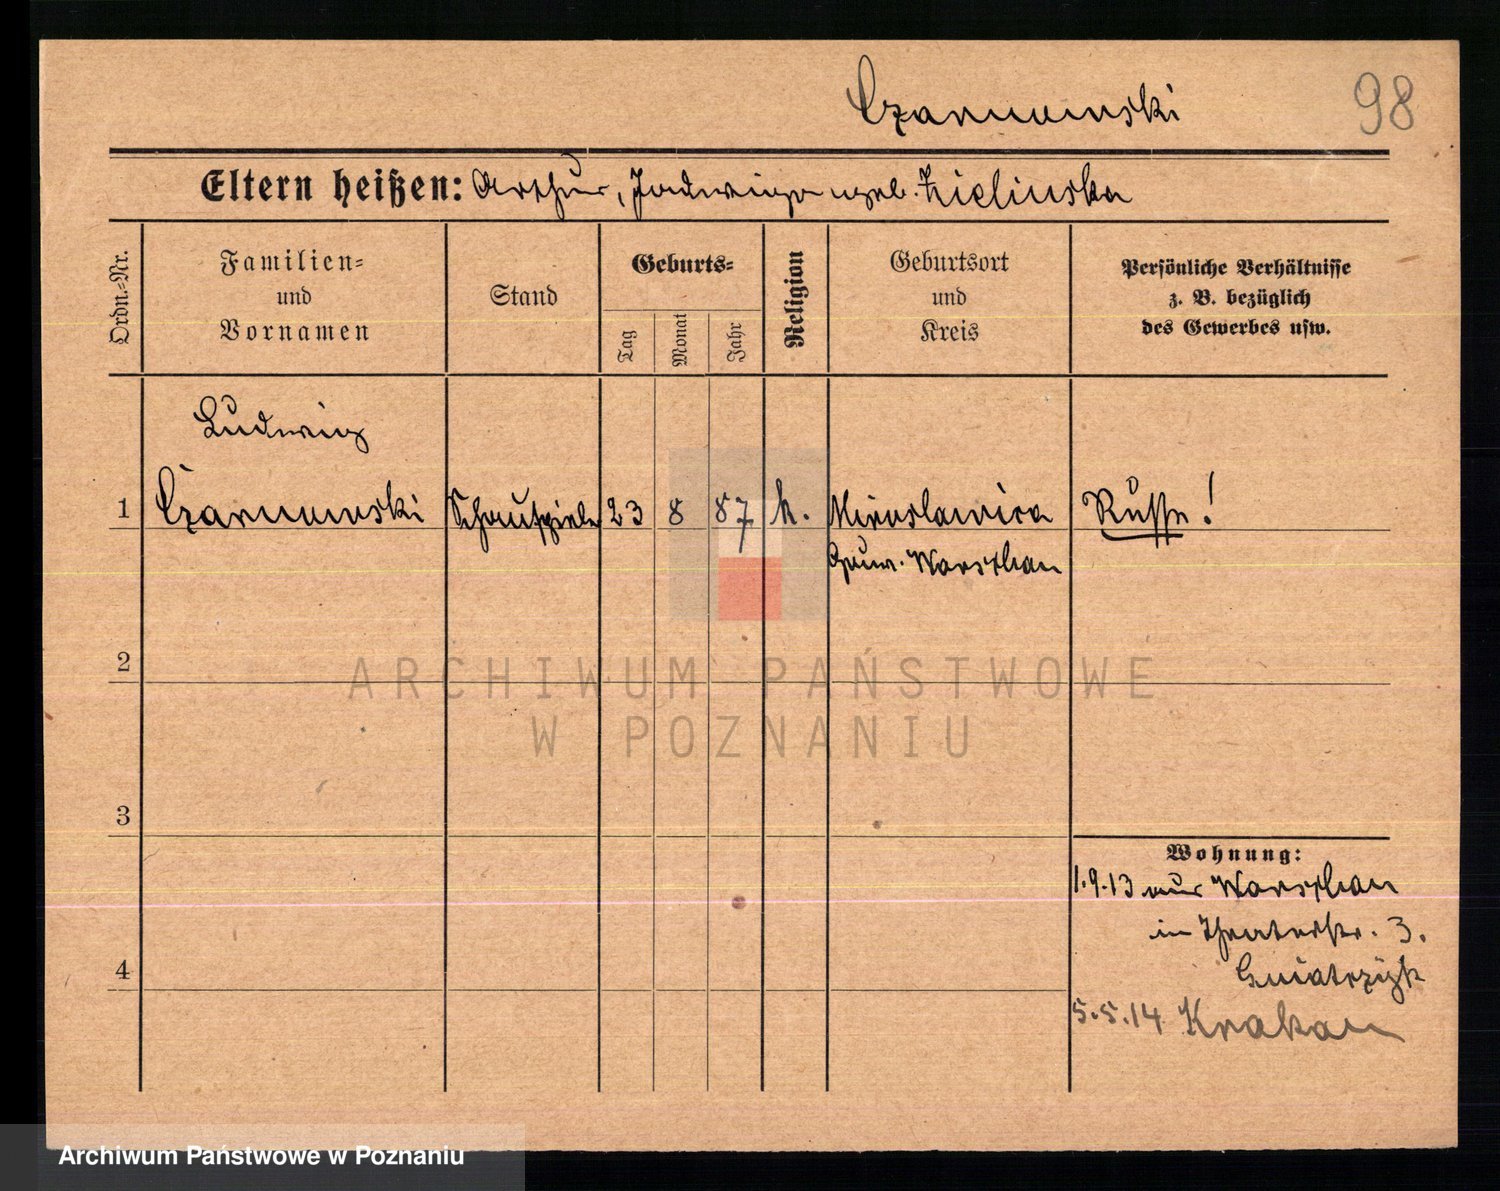 Czarnowski 98
Eltern heißen: Arthur, Jadwiga geb. Zielinska
Ordn.-Nr.
Familien-
und
Vornamen
Stand
Geburts-
Tag
Monat
Jahr
Religion
Geburtsort
und
Kreis
Persönliche Verhältnisse
z. B. bezüglich
des Gewerbes usw.
Ludwig
1 Czarnowski Schauspieler 23 8 87 k. Miroslawica Russe!
Gouv. Warschau
2
ARCHIWUM PAŃSTWOWE
W POZNANIU
3
Wohnung:
1.9.13 aus Warschau
in Theaterstr. 3.
4
5.5.14 Krakau
Archiwum Państwowe w Poznaniu